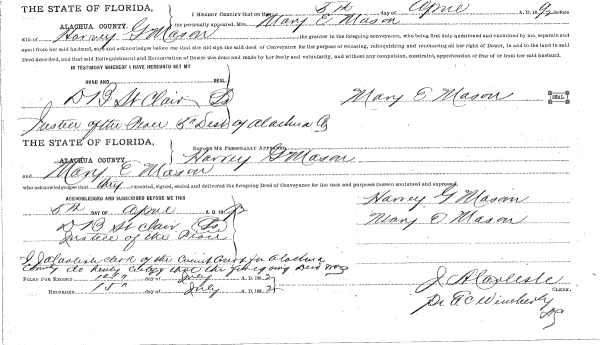 THE STATE OF FLORIDA,
ALACHUA COUNTY.
I HEREBY CERTIFY That on this 5th day of April A. D. 189 2 before
me personally appeared, Mrs. Mary E Mason
wife of Harvey G Mason the grantor in the foregoing conveyance, who being first duly questioned and examined by me, separate and
apart from her said husband, says and acknowledges before me that she did sign the said deed of Conveyance for the purpose of releasing, relinquishing and renouncing all her right of Dower, in and to the land in said
Deed described, and that said Relinquishment and Renunciation of Dower was done and made by her freely and voluntarily, and without any compulsion, constraint, apprehension or fear of or from her said husband.
IN TESTIMONY WHEREOF I HAVE HEREUNTO SET MY
HAND AND SEAL
D B St Clair Ls Mary E Mason SEAL.
Justice of the Peace 5th Dist of Alachua Co
THE STATE OF FLORIDA,
ALACHUA COUNTY.
BEFORE ME PERSONALLY APPEARED Harvey G Mason
AND Mary E Mason
who acknowledges that they executed, signed, sealed and delivered the foregoing Deed of Conveyance for the uses and purposes therein contained and expressed.
ACKNOWLEDGED AND SUBSCRIBED BEFORE ME THIS Harvey G Mason
5th DAY OF April A. D. 1892 Mary E Mason
D B St Clair Ls
Justice of the Peace
I J A Carlisle clerk of the Circuit Court for Alachua
County do hereby certify that the foregoing Deed was
FILED FOR RECORD 12th day of July A. D. 1892 J A Carlisle
CLERK.
RECORDED 15th day of July A. D. 1892 A C Wimberly
DC